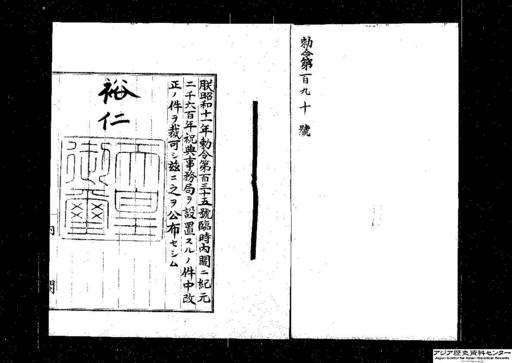 勅令第百九十號
朕昭和十一年勅令第百三十五號臨時內閣ニ紀元
二千六百年祝典事務局ヲ設置スルノ件中改
正ノ件ヲ裁可シ玆ニ之ヲ公布セシム
裕仁
天皇御璽
內閣
アジア歴史資料センター
Japan Center for Asian Historical Records